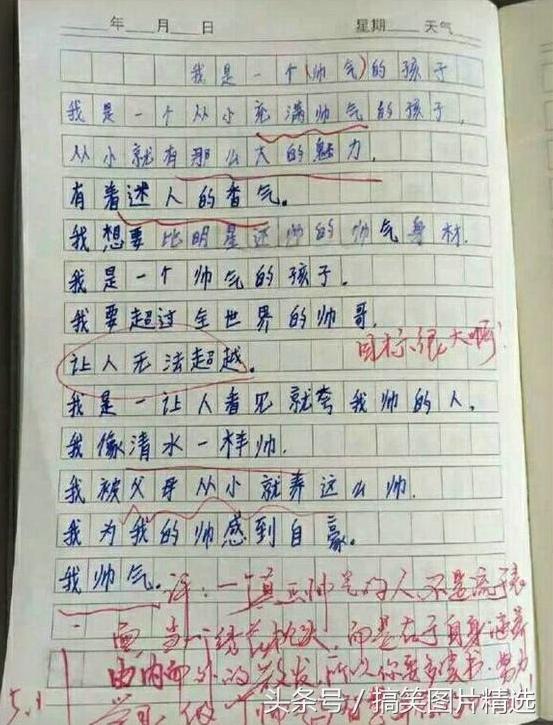 年 月 日 星期 天气
我是一个(帅气)的孩子
我是一个从小充满帅气的孩子,
从小就有那么大的魅力,
有着迷人的香气。
我想要比明星还帅的帅气身材.
我是一个帅气的孩子.
我要超过全世界的帅哥.
目标很大啊!
让人无法超越.
我是一让人看见就夸我帅的人,
我像清水一样帅.
我被父母从小就养这么帅.
我为我的帅感到自豪。
我帅气.
评:一 真正帅气的人,不是流于表
面,当 绣花枕头,而是在于自身
由内而外的 所以你要多读书,努力
5.1
头条号/搞笑图片精选